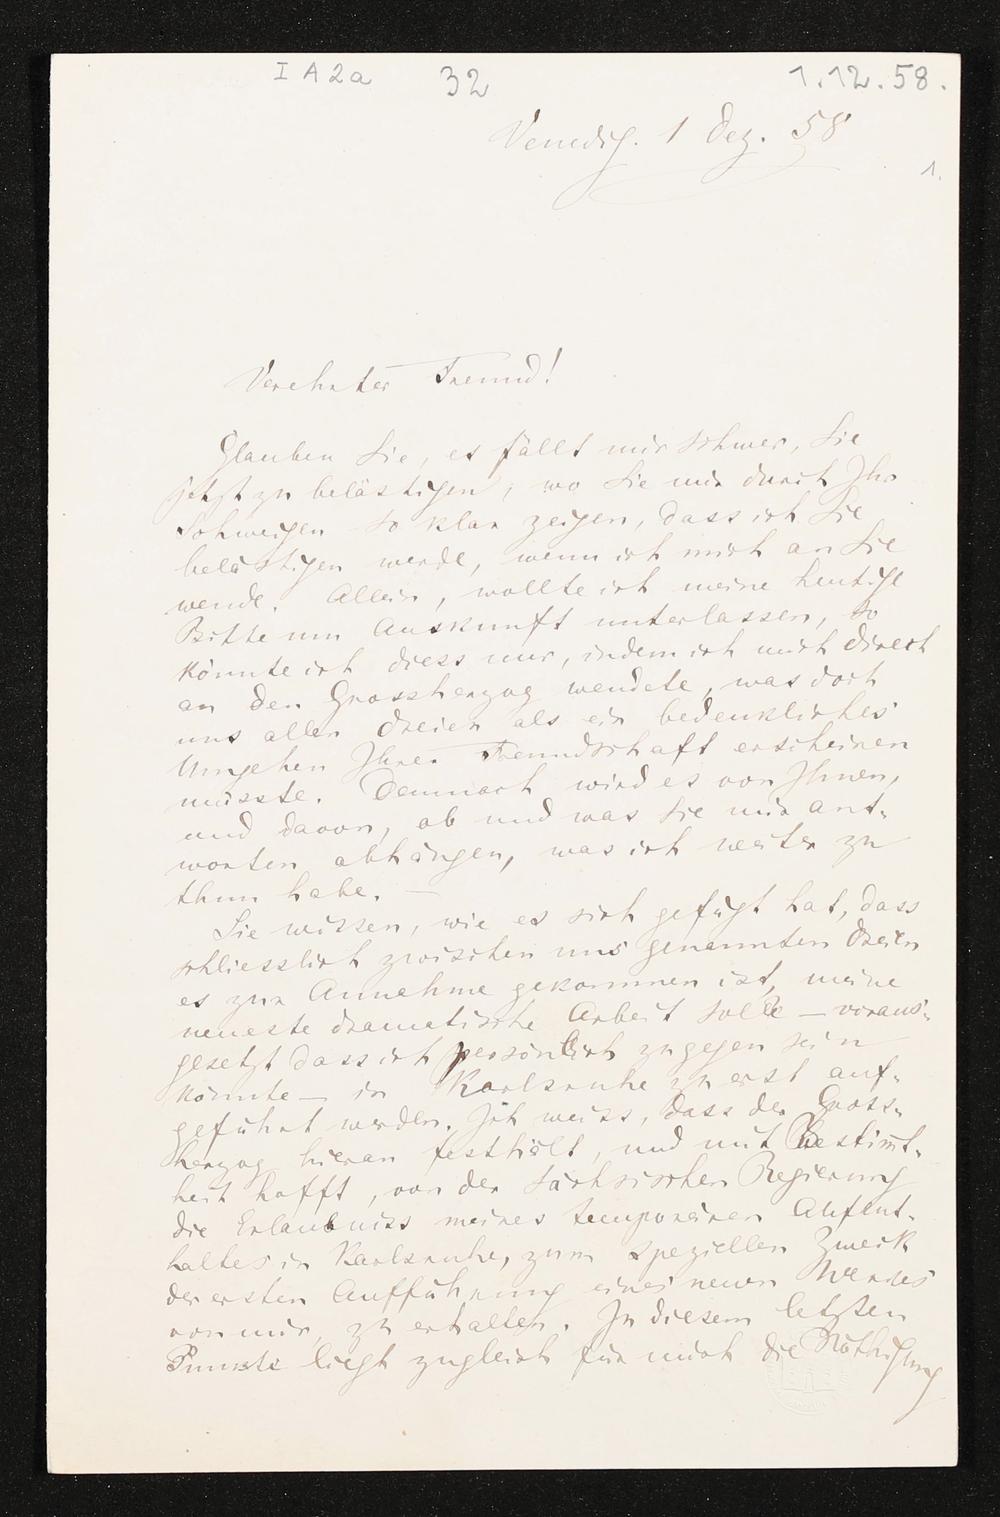 I A 2a 32 1.12.58.
Venedig. 1 Dez. 58
1.
Verehrter Freund!
Glauben Sie, es fällt mir schwer, Sie
jetzt zu belästigen, wo Sie mir durch Ihr
Schweigen so klar zeigen, dass ich Sie
belästigen werde, wenn ich mich an Sie
wende. Allein, wollte ich meine heutige
Bitte um Auskunft unterlassen, so
könnte ich diess nur, indem ich mich direct
an den Grossherzog wendete, was doch
uns allen dreien als ein bedenkliches
Umgehen Ihrer Freundschaft erscheinen
müsste. Demnach wird es von Ihnen,
und davon, ob und was Sie mir ant-
worten abhängen, was ich weiter zu
thun habe. —
Sie wissen, wie es sich gefügt hat, dass
schliesslich zwischen uns genannten dreien
es zur Annahme gekommen ist, meine
neueste dramatische Arbeit solle — voraus-
gesetzt dass ich persönlich zugegen sein
könnte — in Karlsruhe zuerst auf-
geführt werden. Ich weiss, dass der Gross-
herzog hieran festhält, und mit Bestimt-
heit hofft, von der sächsischen Regierung
die Erlaubniss meines temporären Aufent-
haltes in Karlsruhe, zum speziellen Zweck
der ersten Aufführung eines neuen Werkes
von mir, zu erhalten. In diesem letzten
Punkte liegt zugleich für mich die Nöthigung